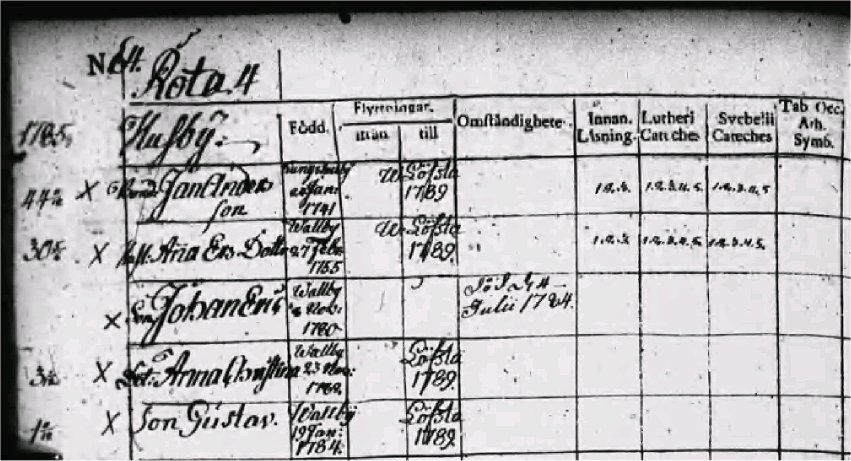 No 64.
Rota 4
Husby.
Född.
Flyttningar.
ifrån till
Omständigheter.
Innan. Läsning.
Lutheri Cateches
Svebelii Cateches
Tab Oec. Ath. Symb.
1785,
44 X Jan Anders son
Jan: 1741
W. Löfsta 1789
1.2.3.
1.2.3.4.5.
1.2.3.4.5
30 X Hust. Ana Ers Dottr
Wallby 27 Feb: 1755
W. Löfsta 1789.
1.2.3.
1.2.3.4.5.
1.2.3.4.5.
X Son Johan Eric
Wallby Nov: 1780
Julii 1784.
3 X Dot: Anna Christina
Wallby 23 1782.
Löfsta 1789.
1 X Son Gustav.
Wallby 19 Jan: 1784.
Löfsta 1789.